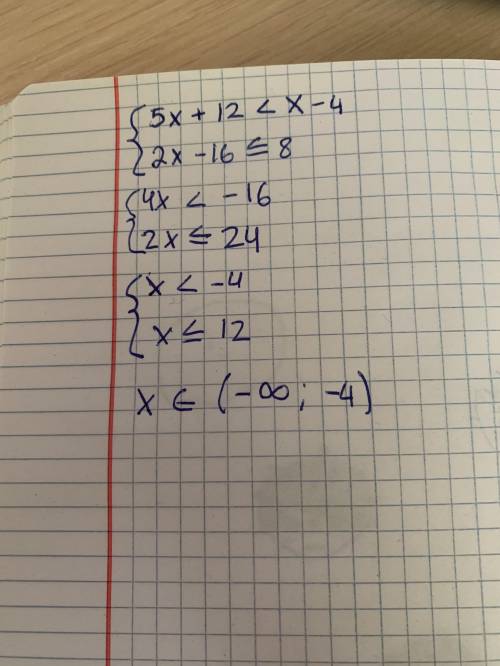 { 5x + 12 < x - 4
{ 2x - 16 ≤ 8
{ 4x < -16
{ 2x ≤ 24
{ x < -4
{ x ≤ 12
x ∈ (-∞; -4)